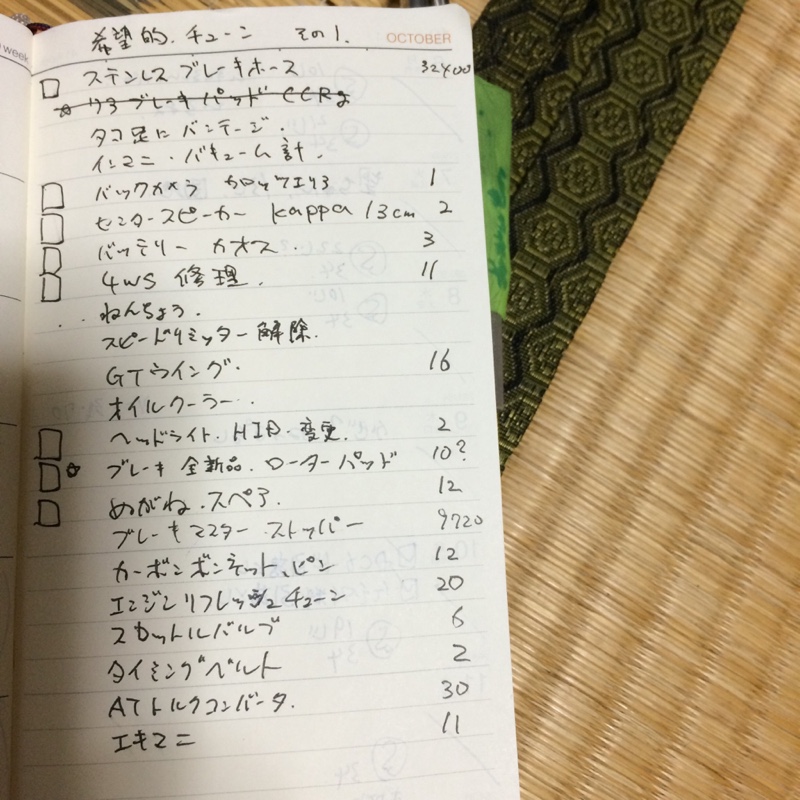 希望的.チューン その1. OCTOBER
week
ステンレスブレーキホース 32400
ブレーキパッド CCRg
タコ足にバンテージ.
インマニ・バキューム計.
バックカメラ カロッツェリア 1
センタースピーカー kappa 13cm 2
バッテリー カオス. 3
4WS 修理. 11
ねんちょう.
スピードリミッター解除.
GTウイング. 16
オイルクーラー.
ヘッドライト.HID.変更. 2
ブレーキ全新品.ローターパッド 10?
めがね.スペア. 12
ブレーキマスターストッパー 9720
カーボンボンネット、ピン 12
エンジンリフレッシュチューン 20
スロットルバルブ 6
タイミングベルト 2
ATトルクコンバータ. 30
エキマニ 11